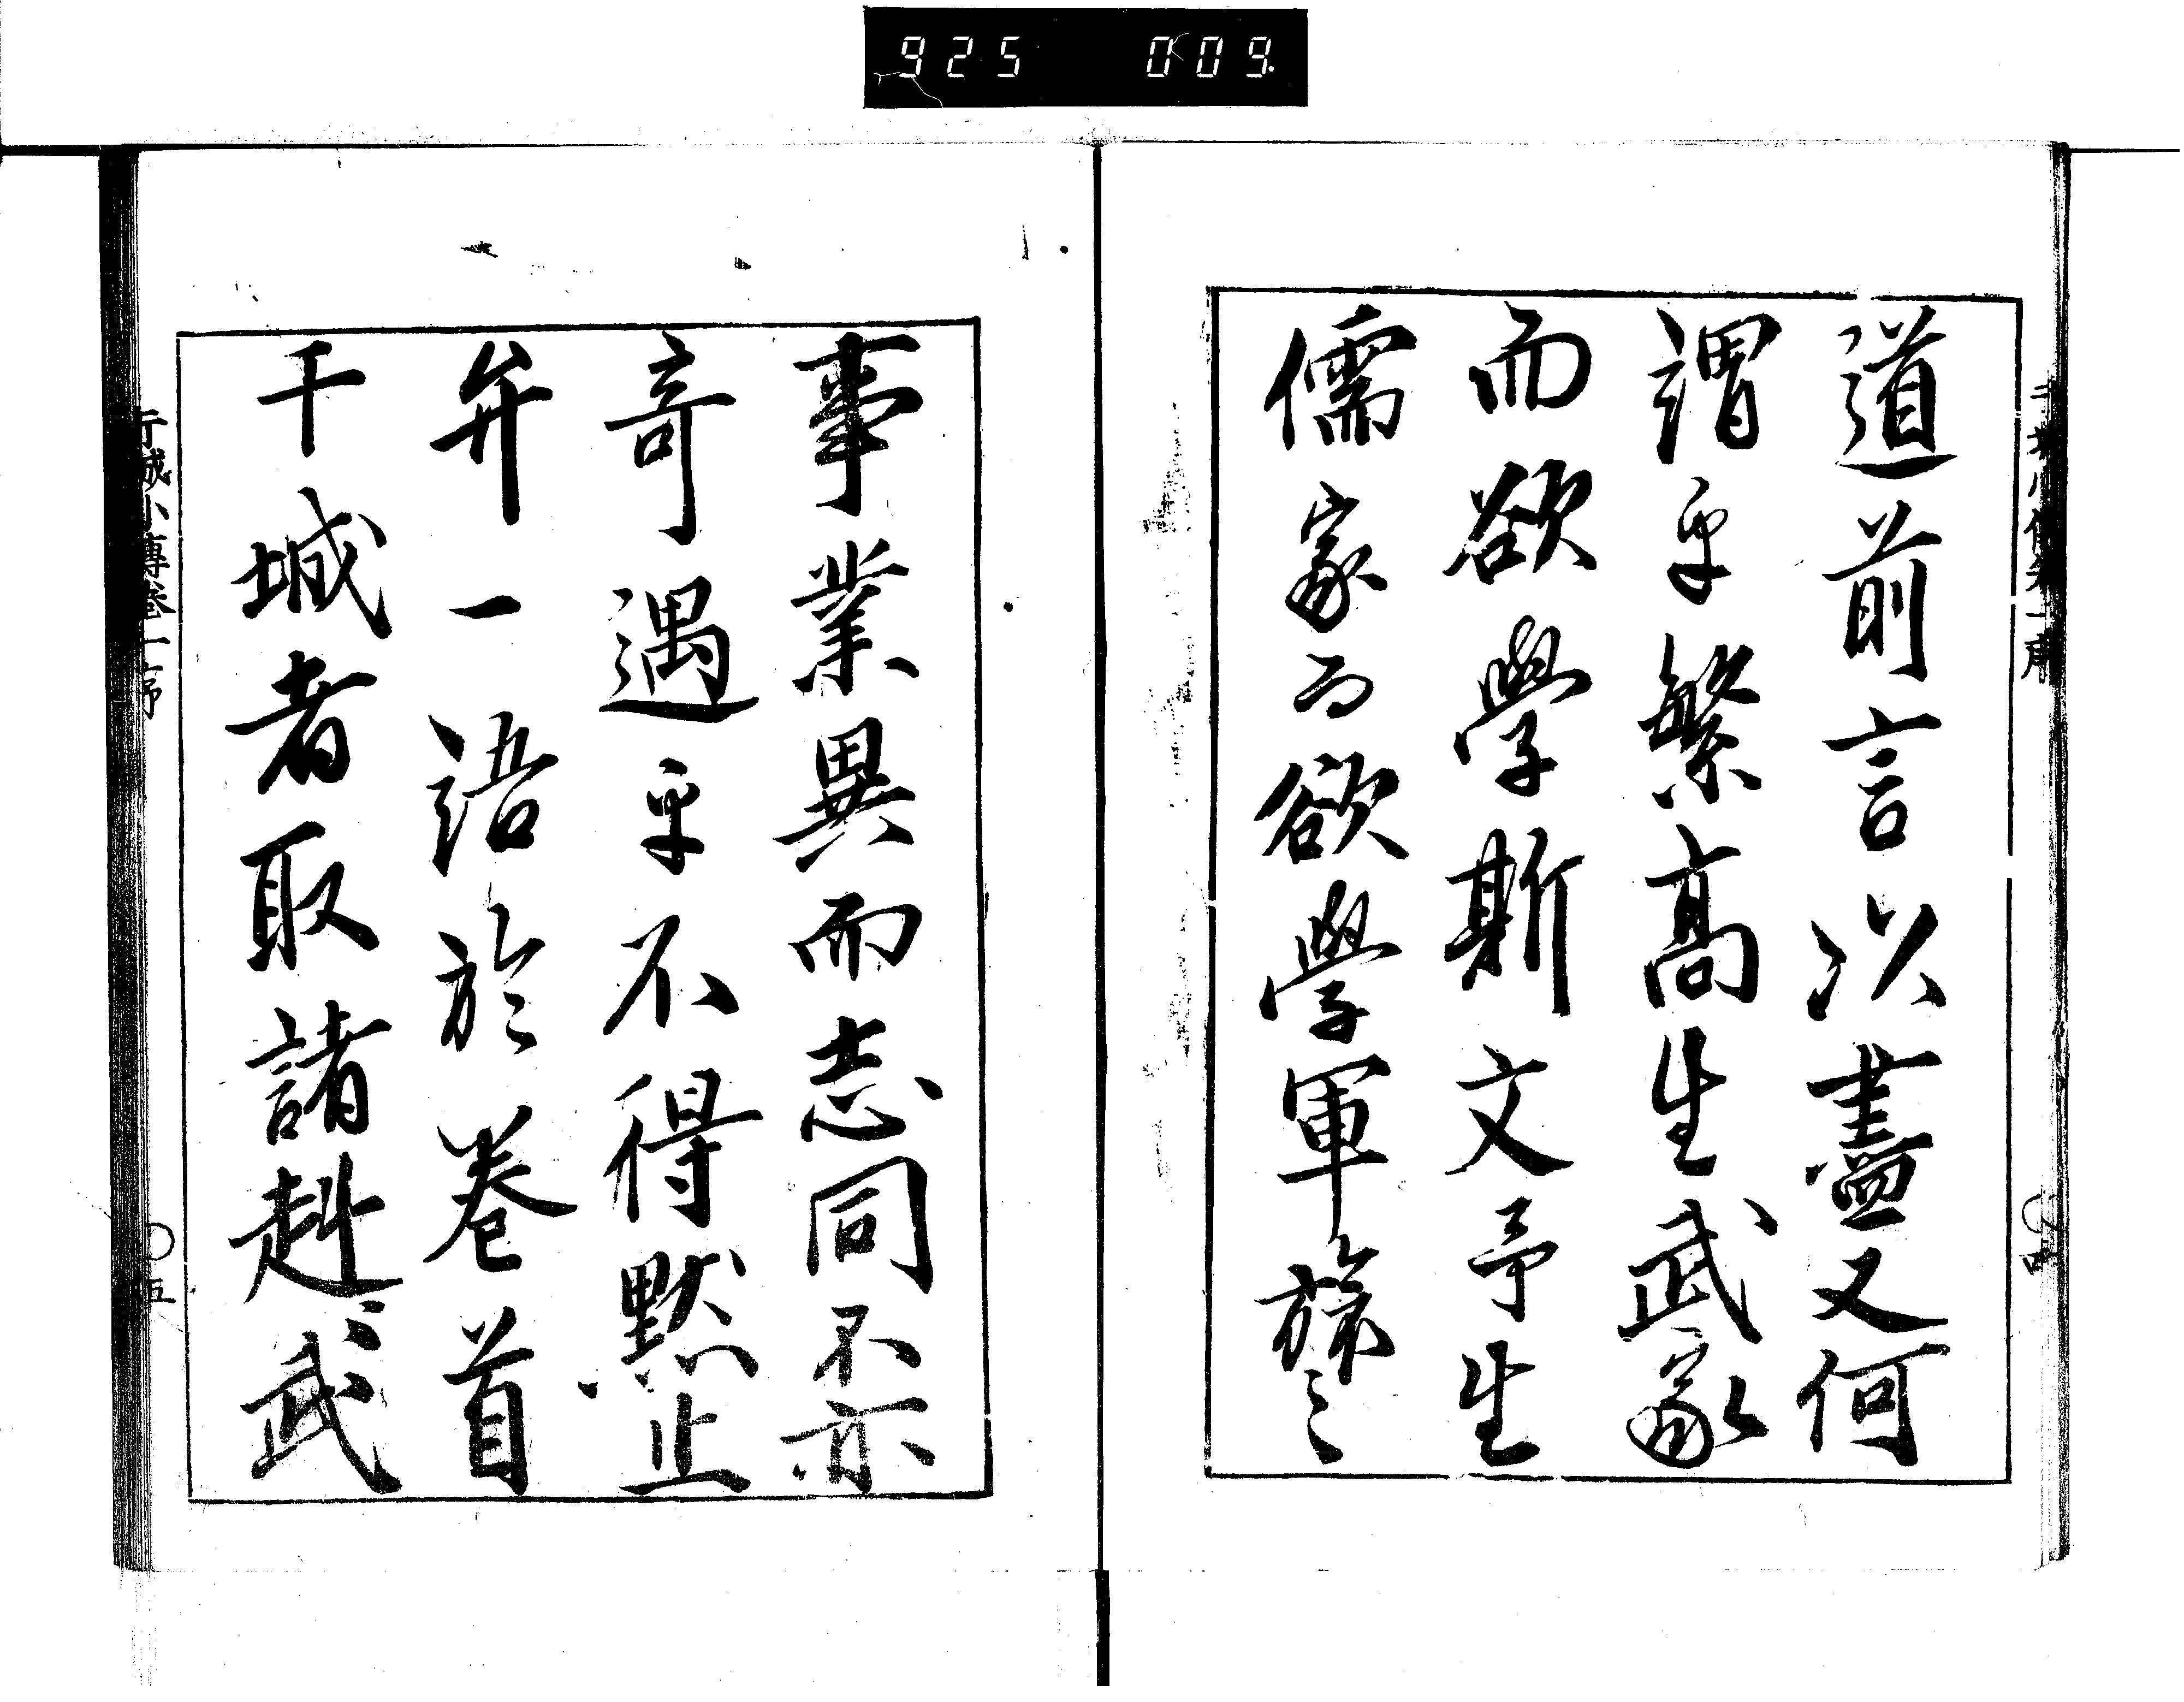 925 009
道前言以盡又何
謂乎繁高生武家
而欲學斯文予生
儒家而欲學軍旅之
事業異而志同不亦
奇遇乎不得默止
弁一語於巻首
干城者取諸赳〻武
干城小傳巻一序
〇五